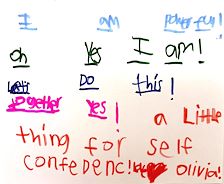 I am powerful!
oh Yes I am!
Let's Do this!
together Yes!
a Little
thing for self
confedenc! olivia!